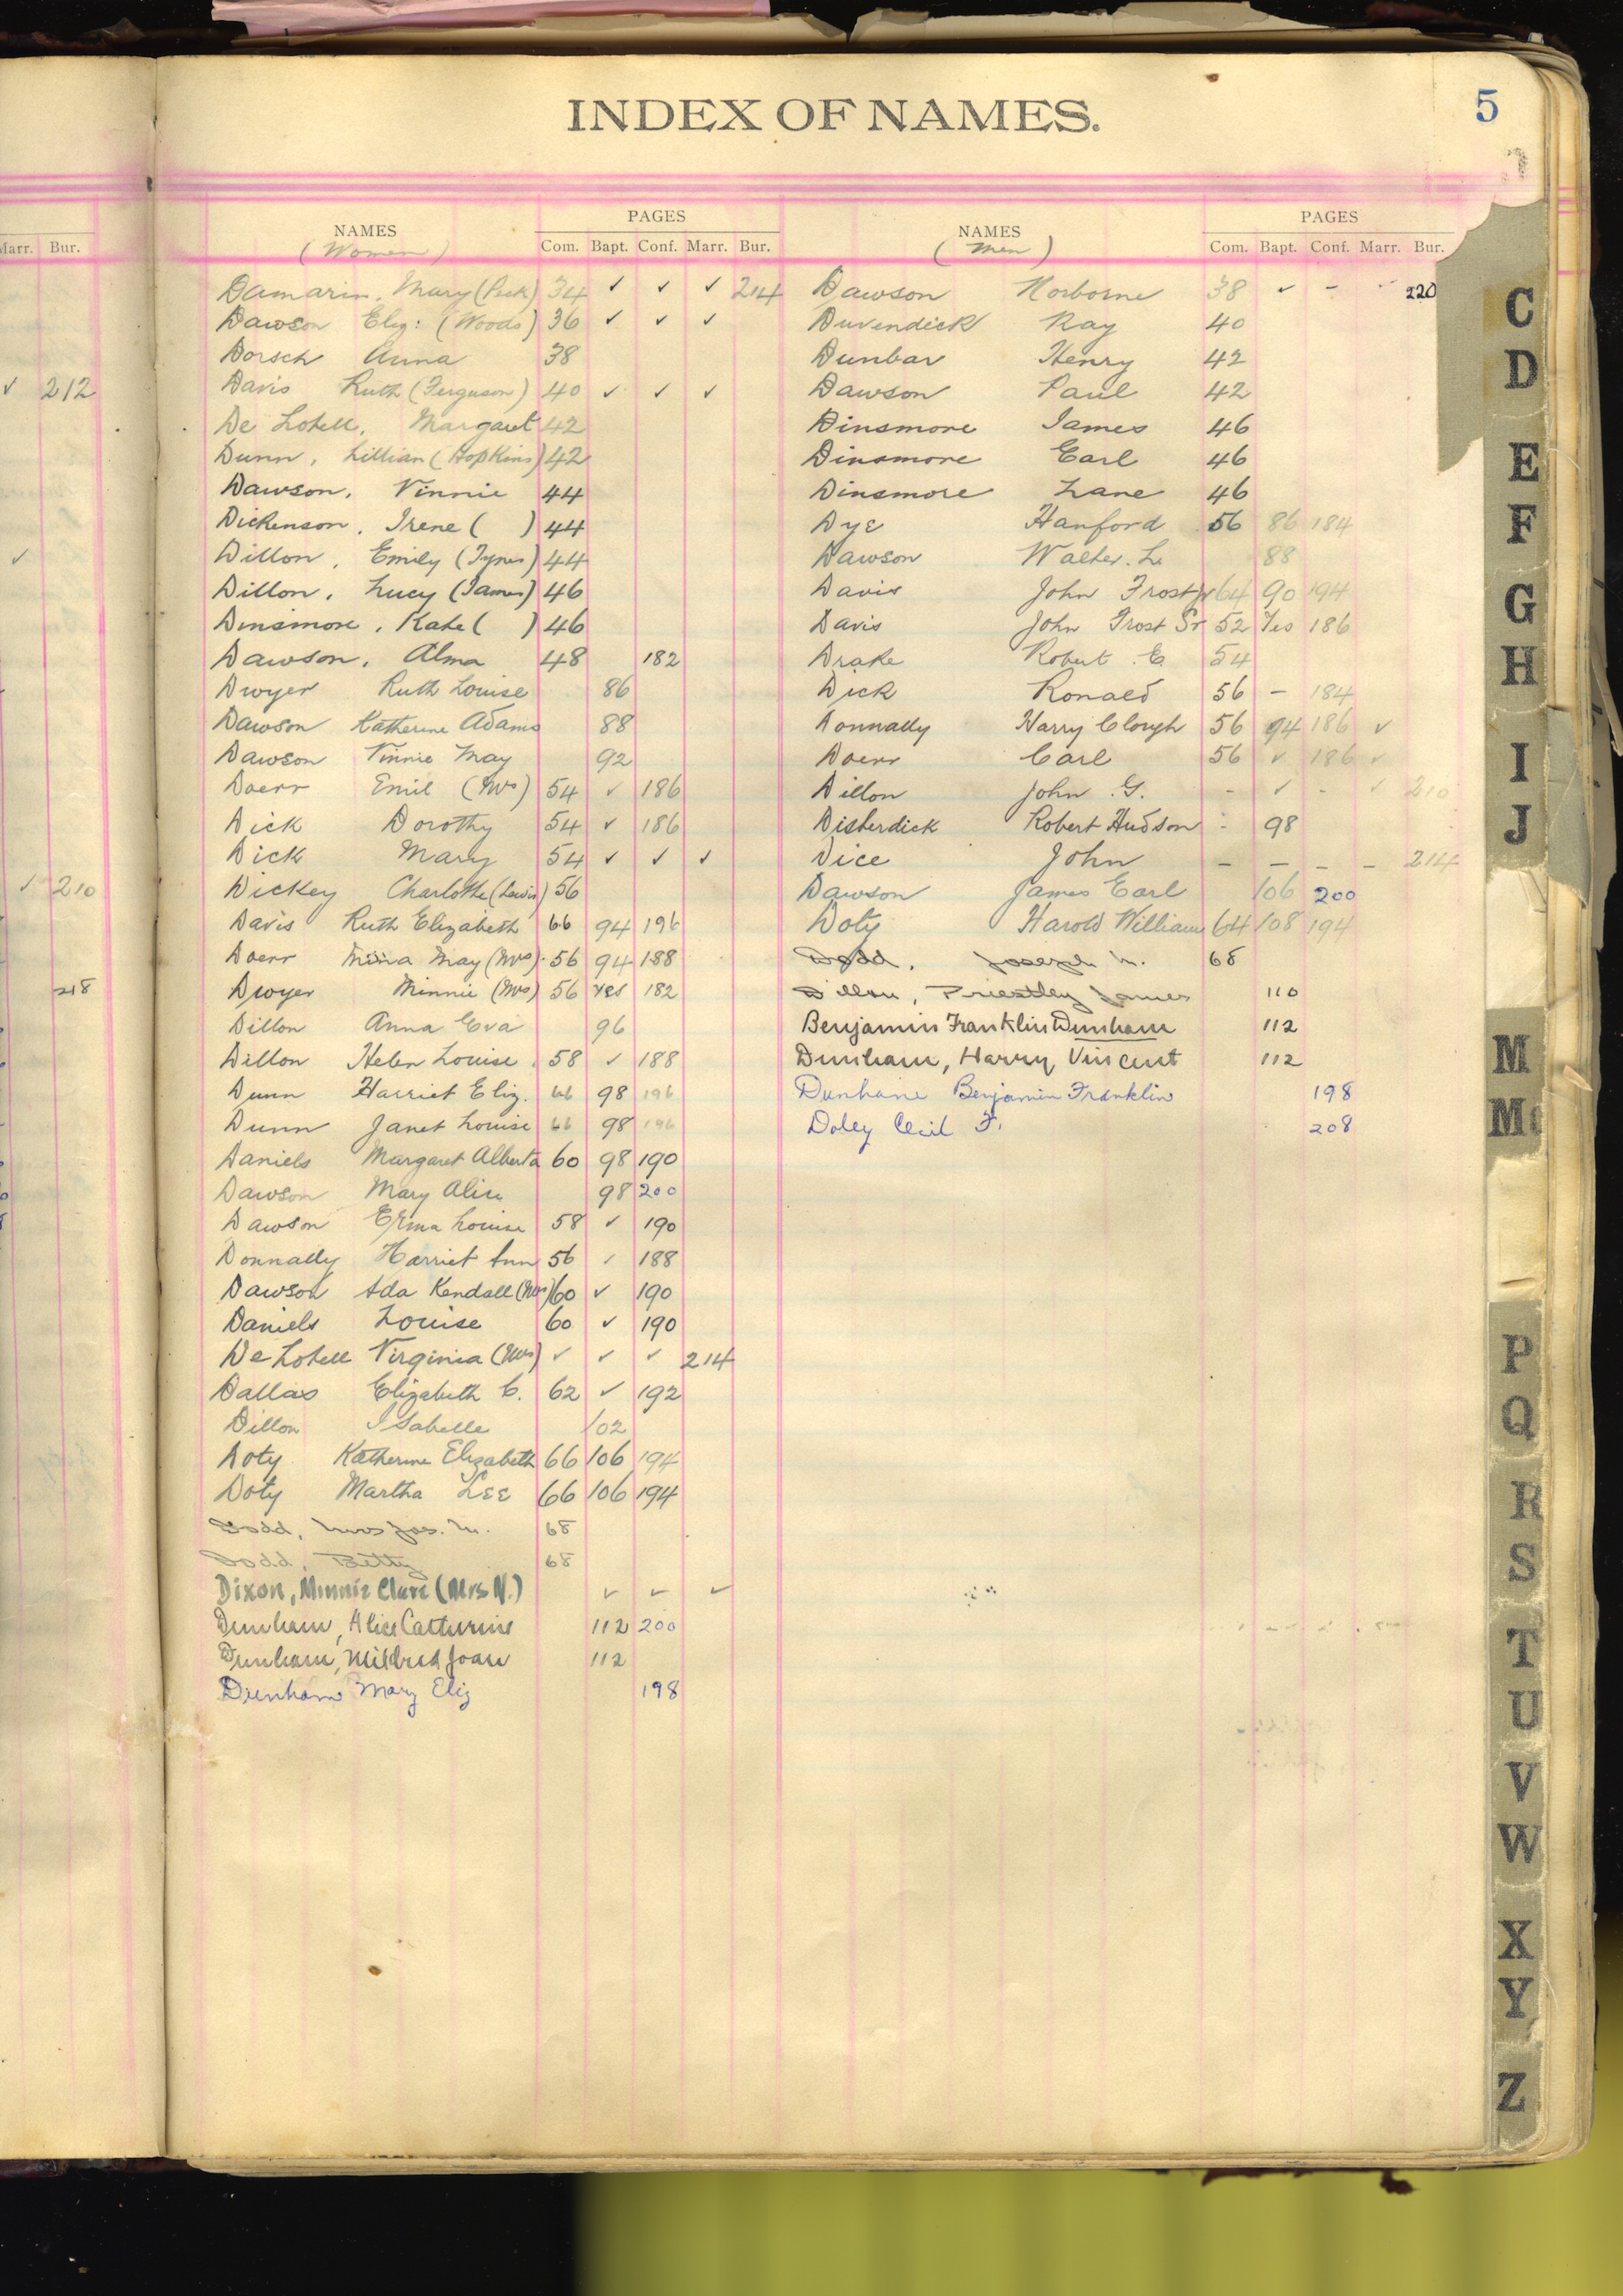 INDEX OF NAMES.
5
NAMES
(Women)
PAGES
Com. Bapt. Conf. Marr. Bur.
Damarin, Mary (Peck) 34 ✓ ✓ ✓ 214
Dawson Eliz: (Woods) 36 ✓ ✓ ✓
Dorsch Anna 38
Davis Ruth (Ferguson) 40 ✓ ✓ ✓
De Lotell, Margaret 42
Dunn, Lillian (Hopkins) 42
Dawson, Vinnie 44
Dickenson, Irene ( ) 44
Dillon, Emily (Tynes) 44
Dillon, Lucy (James) 46
Dinsmore, Kate ( ) 46
Dawson, Alma 48 182
Dwyer Ruth Louise 86
Dawson Katherine Adams 88
Dawson Vinnie May 92
Doerr Emil (Mrs) 54 ✓ 186
Dick Dorothy 54 ✓ 186
Dick Mary 54 ✓ ✓ ✓
Dickey Charlotte (Lewis) 56
Davis Ruth Elizabeth 66 94 196
Doerr Mina May (Mrs) 56 94 188
Dwyer Minnie (Mrs) 56 Yes 182
Dillon Anna Eva 96
Dillon Helen Louise 58 ✓ 188
Dunn Harriet Eliz. 66 98 196
Dunn Janet Louise 66 98 196
Daniels Margaret Alberta 60 98 190
Dawson Mary Alice 98 200
Dawson Erma Louise 58 ✓ 190
Donnally Harriet Ann 56 ✓ 188
Dawson Ada Kendall (Mrs) 60 ✓ 190
Daniels Louise 60 ✓ 190
De Lotell Virginia (Mrs) ✓ ✓ ✓ 214
Dallas Elizabeth C. 62 ✓ 192
Dillon Isabelle 102
Doty Katherine Elizabeth 66 106 194
Doty Martha Lee 66 106 194
Dodd, Mrs Jos. M. 68
Dodd, Betty 68
Dixon, Minnie Clare (Mrs N.) ✓ ✓ ✓
Dunham, Alice Catherine 112 200
Dunham, Mildred Joan 112
Dunham Mary Eliz 198
NAMES
(Men)
PAGES
Com. Bapt. Conf. Marr. Bur.
Dawson Norborne 38 ✓ - - 220
Duvendick Ray 40
Dunbar Henry 42
Dawson Paul 42
Dinsmore James 46
Dinsmore Earl 46
Dinsmore Lane 46
Dye Hanford 56 86 184
Dawson Walter. L. 88
Davis John Frost Jr 64 90 194
Davis John Frost Sr 52 Yes 186
Drake Robert E. 54
Dick Ronald 56 - 184
Donnally Harry Clough 56 94 186 ✓
Doerr Carl 56 ✓ 186 ✓
Dillon John G. - ✓ - ✓ 210
Disterdick Robert Hudson - 98
Dice John - - - - 214
Dawson James Earl 106 200
Doty Harold William 64 108 194
Dodd, Joseph M. 68
Dillon, Priestley James 110
Benjamin Franklin Dunham 112
Dunham, Harry Vincent 112
Dunham Benjamin Franklin 198
Doley Cecil F. 208
Marr. Bur.
✓ 212
✓
✓ 210
218
C
D
E
F
G
H
I
J
M
Mc
P
Q
R
S
T
U
V
W
X
Y
Z